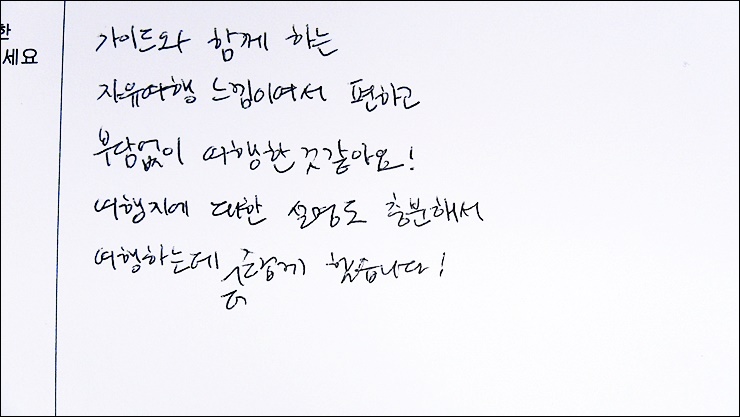 한
세요
가이드와 함께 하는
자유여행 느낌이여서 편하고
부담없이 여행한것같아요!
여행지에 대한 설명도 충분해서
여행하는데 더 즐겁게 했습니다!